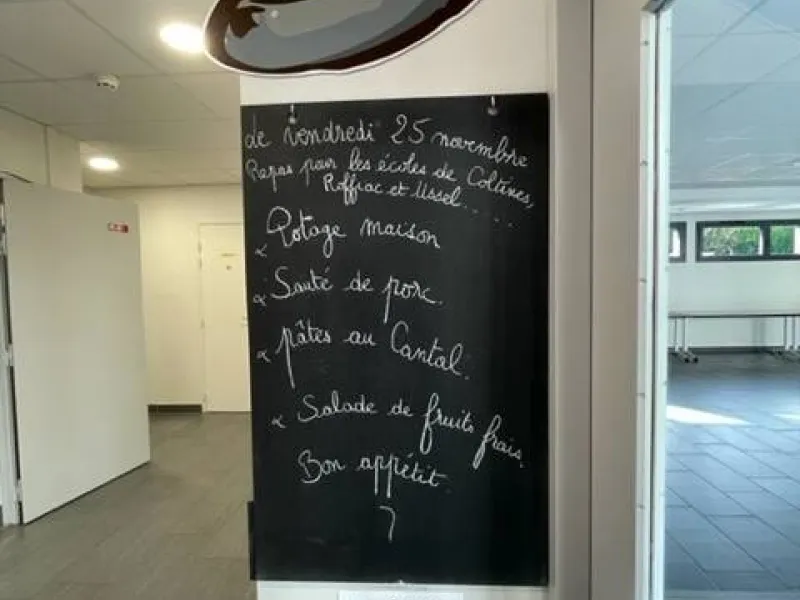 Le vendredi 25 novembre
Repas pour les écoles de Coltines,
Roffiac et Ussel.....
Potage maison
Sauté de porc.
pâtes au Cantal.
Salade de fruits frais.
Bon appétit.